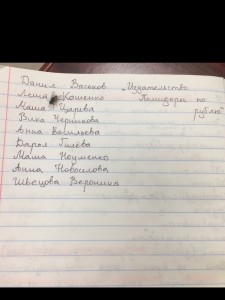 Данил Васьков „Издательство
Леша Кошенко Помидоры по
Маша Царёва рублю"
Вика Черникова
Анна Васильева
Дарья Гилёва
Маша Науменко
Анна Новосилова
Швецова Вероника